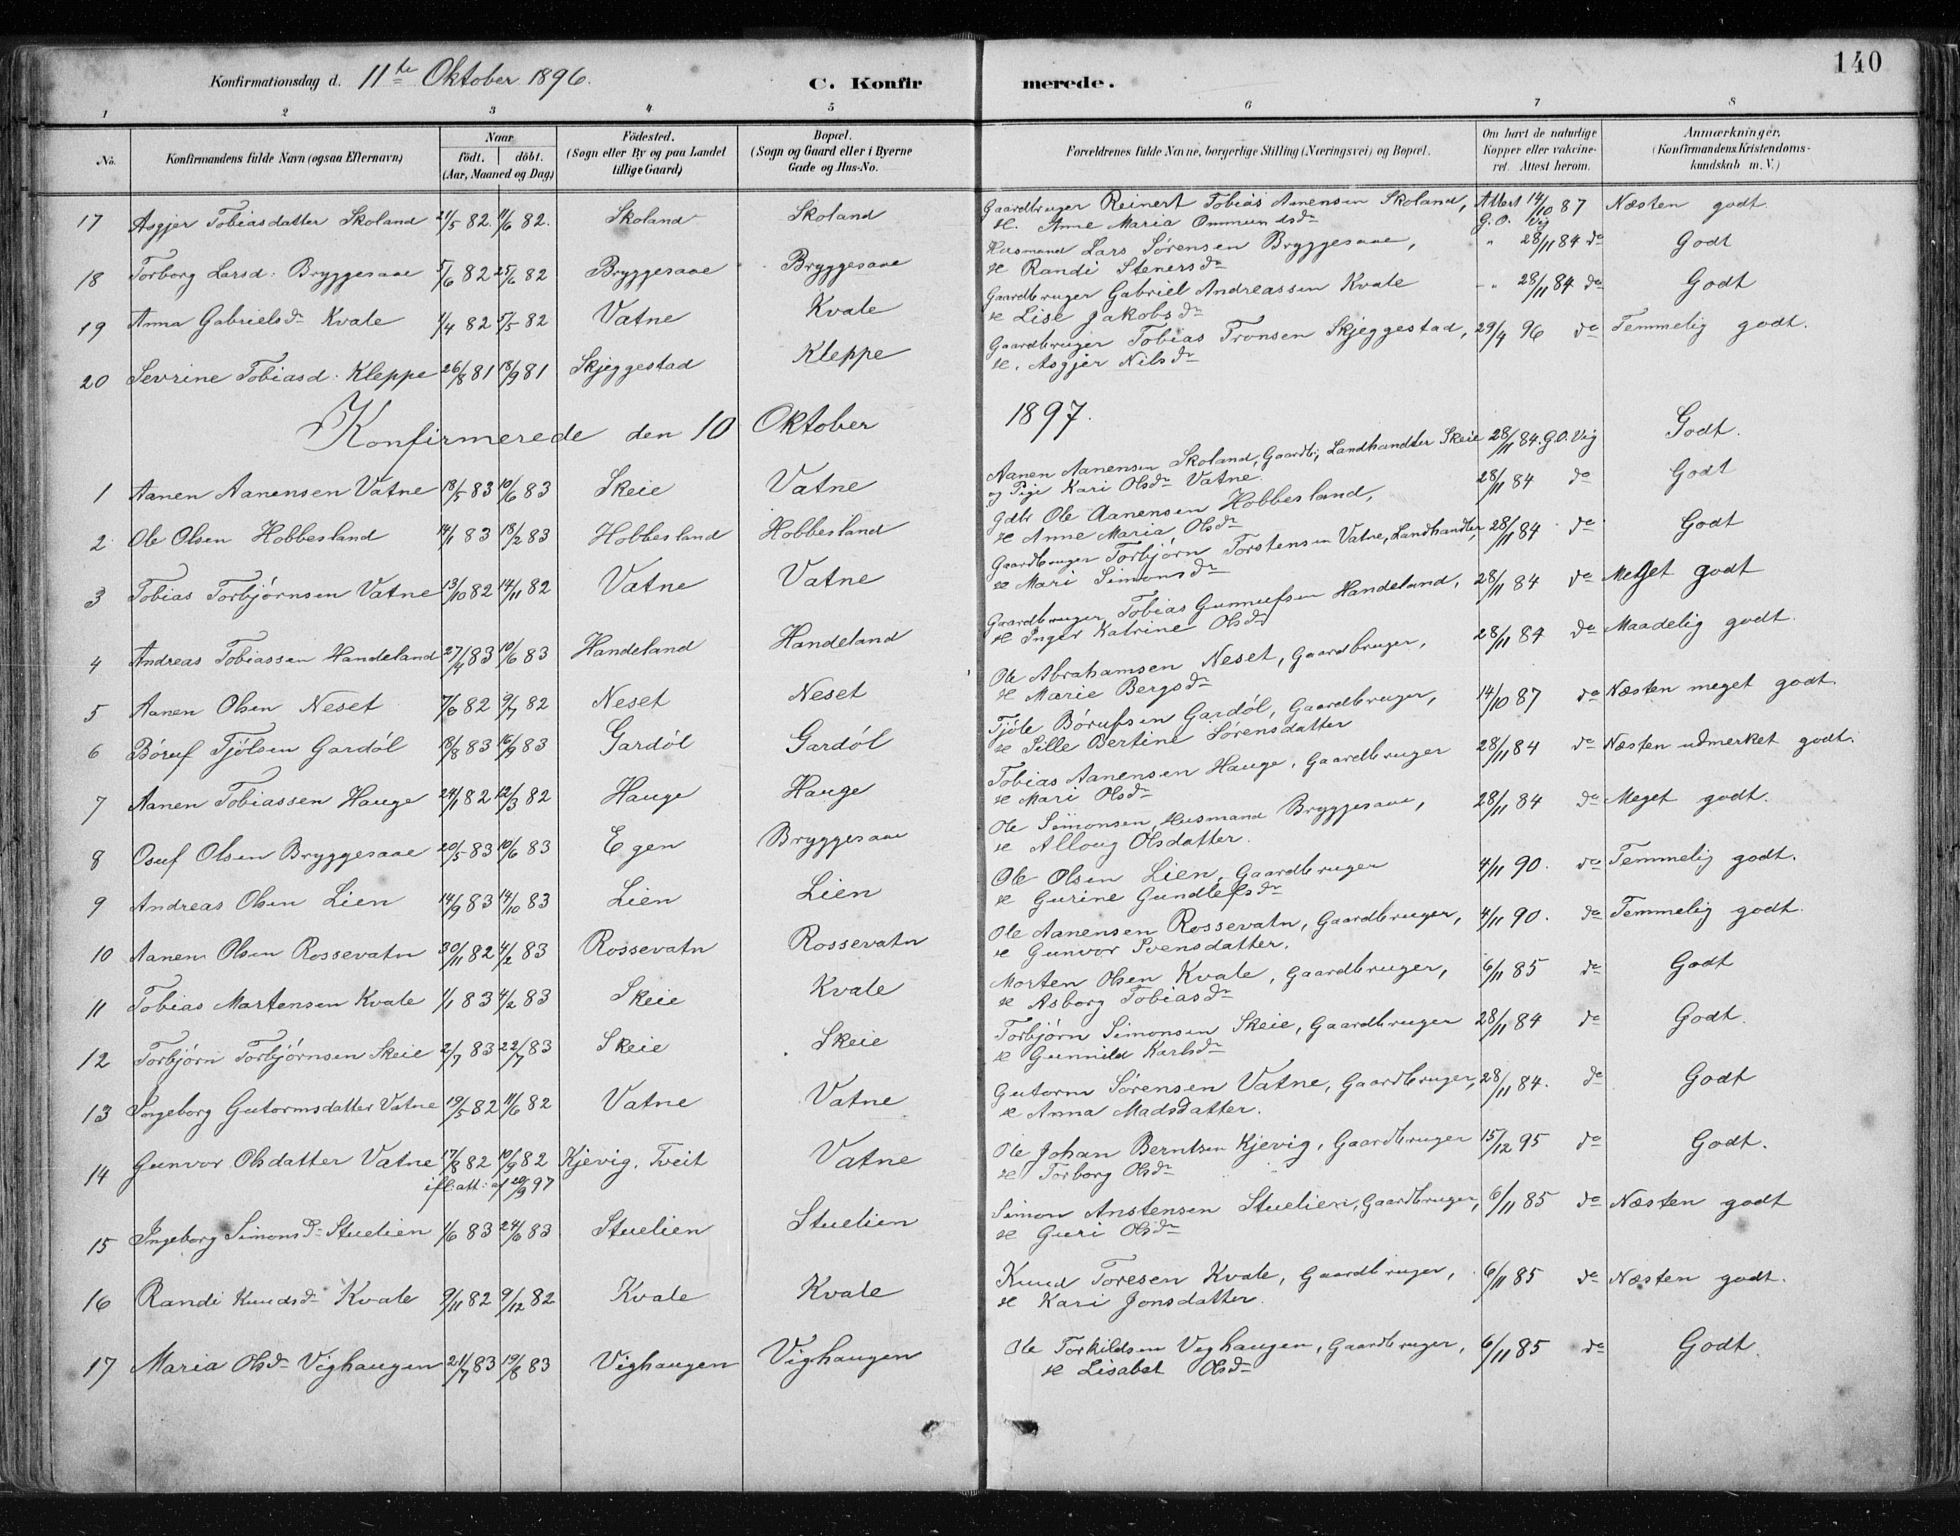 140
Konfirmationsdag d. 11te Oktober 1896. C. Konfirmerede.
1 2 3 4 5 6 7 8
No. Konfirmandens fulde Navn (ogsaa Efternavn) Naar födt. döbt. (Aar, Maaned og Dag) Födested. (Sogn eller By og paa Landet tillige Gaard) Bopæl. (Sogn og Gaard eller i Byerne Gade og Hus-No. Forældrenes fulde Navne, borgerlige Stilling (Næringsvei) og Bopæl. Om havt de naturlige Kopper eller vakcineret. Attest herom. Anmærkninger. (Konfirmandens Kristendomskundskab m. V.)
17 Asgjer Tobiasdatter Skoland 21/5 82. 11/6 82. Skoland Skoland Gaardbruger Reinert Tobias Aanensen Skoland, Attest 14/10 87 Næsten godt
H. Anne Maria Ommundsdr G. O. Vig
18 Torborg Larsd: Bryggesaae 5/6 82 25/6 82 Bryggesaae Bryggesaae Husmand Lars Sørensen Bryggesaae, " 28/11 84 do Godt
H Randi Stenersdr
19 Anna Gabrielsdr Kvale 1/4 82 5/5 82 Vatne Kvale Gaardbruger Gabriel Andreassen Kvale " 28/11 84 do Godt
H Lise Jakobsdr
20 Sevrine Tobiasd: Kleppe 26/8 81 18/9 81 Skjeggestad Kleppe Gaardbruger Tobias Tronsen Skjeggestad, 29/4 96 do Temmelig godt.
H. Asgjer Nilsdr
Konfirmerede den 10 Oktober 1897.
1 Aanen Aanensen Vatne 18/5 83 10/6 83 Skeie Vatne Aanen Aanensen Skoland, Gaardb:, Landhandler Skeie 28/11 84. G.O. Vig Godt.
og Pige Kari Olsdr Vatne.
2 Ole Olsen Hobbesland 14/1 83 18/2 83 Hobbesland Hobbesland Gdbr Ole Aanensen Hobbesland, 28/11 84 do Godt
H Anne Maria Olsdr
3 Tobias Torbjørnsen Vatne 13/10 82 14/11 82 Vatne Vatne Gaardbruger Torbjørn Torstensen Vatne, Landhandler, 28/11 84 do Godt
H Mari Simonsdr
4 Andreas Tobiassen Handeland 27/4 83 10/6 83 Handeland Handeland Gaardbruger Tobias Gunnufsen Handeland, 28/11 84 do Meget godt
H Inger Katrine Olsdr
5 Aanen Olsen Neset 7/6 82 9/7 82 Neset Neset Ole Abrahamsen Neset, Gaardbruger, 28/11 84 do Maadelig godt.
H Marie Bergsdr
6 Böruf Tjölsen Gardöl 18/8 83 16/9 83 Gardöl Gardöl Tjöle Börufsen Gardöl, Gaardbruger, 14/10 87 do Næsten meget godt.
H Sille Bertine Sörensdatter
7 Aanen Tobiassen Hauge 24/1 82 12/3 82 Hauge Hauge Tobias Aanensen Hauge, Gaardbruger 28/11 84 do Næsten udmerket godt.
H Mari Olsdr
8 Osuf Olsen Bryggesaae 20/5 83 10/6 83 Egen Bryggesaae Ole Simonsen, Husmand Bryggesaae, 28/11 84 do Meget godt.
H Alloug Olsdatter.
9 Andreas Olsen Lien 14/9 83 14/10 83 Lien Lien Ole Olsen Lien, Gaardbruger 4/11 90. do Temmelig godt.
H Gurine Gundlefsdr
10 Aanen Olsen Rossevatn 30/11 82 4/2 83 Rossevatn Rossevatn Ole Aanensen Rossevatn, Gaardbruger, 4/11 90. do Temmelig godt.
H Gunvor Svensdatter.
11 Tobias Martensen Kvale 1/1 83 4/2 83 Skeie Kvale Morten Olsen Kvale, Gaardbruger, 6/11 85 do Godt
H Asborg Tobiasdr
12 Torbjörn Torbjörnsen Skeie 2/7 83 22/7 83 Skeie Skeie Torbjörn Simonsen Skeie, Gaardbruger 28/11 84 do Godt.
H Gunnild Karlsdr
13 Ingeborg Gutormsdatter Vatne 19/5 82 11/6 82 Vatne Vatne Gutorm Sørensen Vatne, Gaardbruger, 28/11 84. do Godt
H Anna Madsdatter.
14 Gunvor Olsdatter Vatne 17/8 82 10/9 82 Kjevig, Tveit Vatne Ole Johan Berntsen Kjevig, Gaardbruger 15/12 95 do Godt.
ifl: att: af 20/9 97 H Torborg Olsdr
15 Ingeborg Simonsdr Stuelien 1/6 83 24/6 83 Stuelien Stuelien Simon Anstensen Stuelien, Gaardbruger, 6/11 85 do Næsten godt
H Guri Olsdr
16 Randi Knudsdr Kvale 9/11 82 9/12 82 Kvale Kvale Knud Toresen Kvale, Gaardbruger, 6/11 85 do Næsten godt.
H Kari Jonsdatter.
17 Maria Olsdr Vighaugen 21/7 83 19/8 83 Vighaugen Vighaugen Ole Torkildsen Veghaugen, Gaardbruger, 6/11 85 do Godt.
H Lisabet Olsdr